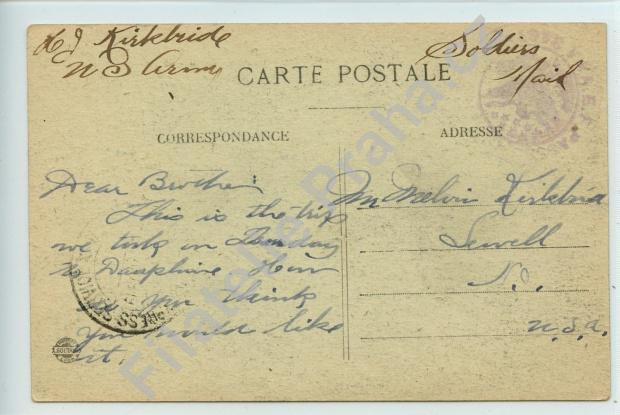 H J Kirkbride
U S Army
Soldiers
Mail
CARTE POSTALE
CORRESPONDANCE
ADRESSE
Dear Brother:
This is the trip
we took on Sunday
to Dauphine How
do you think
you would like
it.
Mr Melvin Kirkbride
Sewell
N.J.
U.S.A.
Filatelie Praha.cz